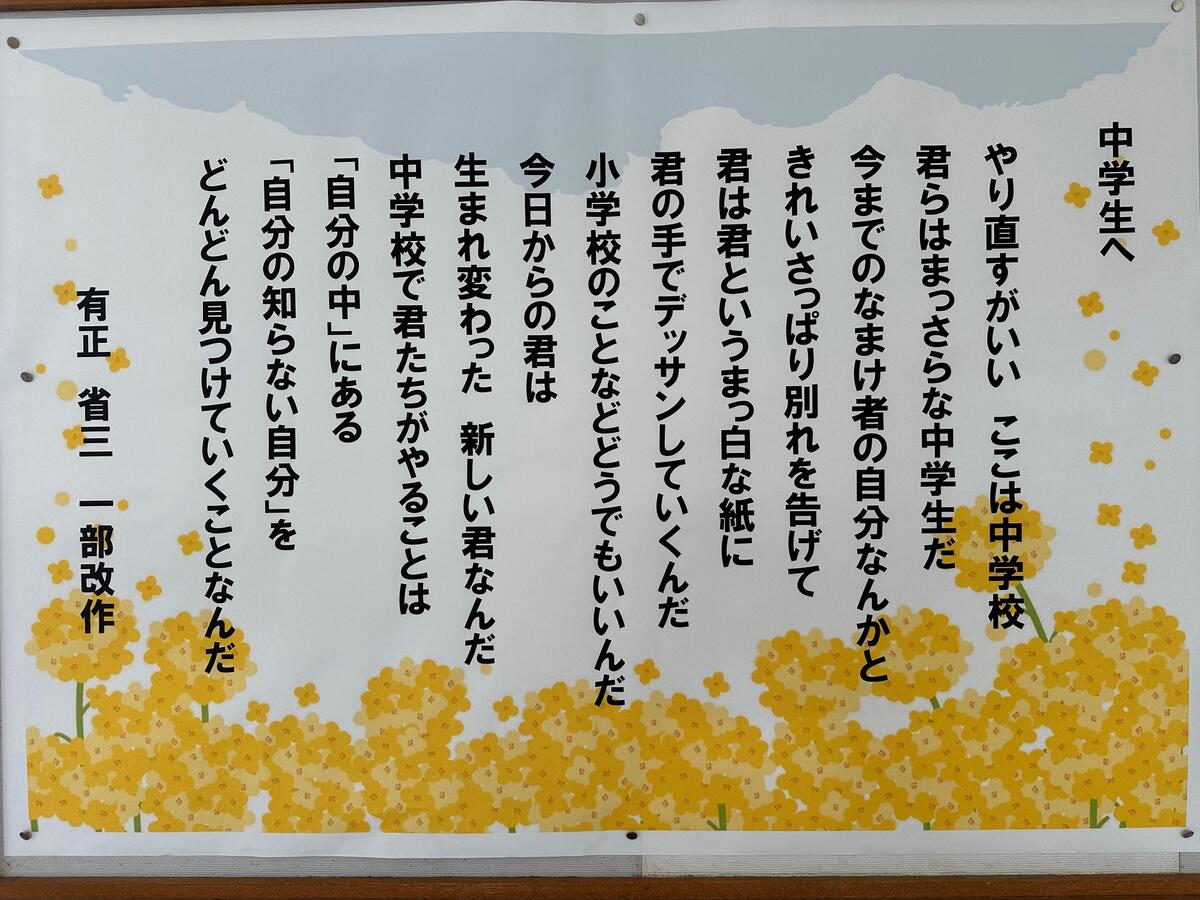 中学生へ
やり直すがいい　ここは中学校
君らはまっさらな中学生だ
今までのなまけ者の自分なんかと
きれいさっぱり別れを告げて
君は君というまっ白な紙に
君の手でデッサンしていくんだ
小学校のことなどどうでもいいんだ
今日からの君は
生まれ変わった　新しい君なんだ
中学校で君たちがやることは
「自分の中」にある
「自分の知らない自分」を
どんどん見つけていくことなんだ
有正　省三　一部改作